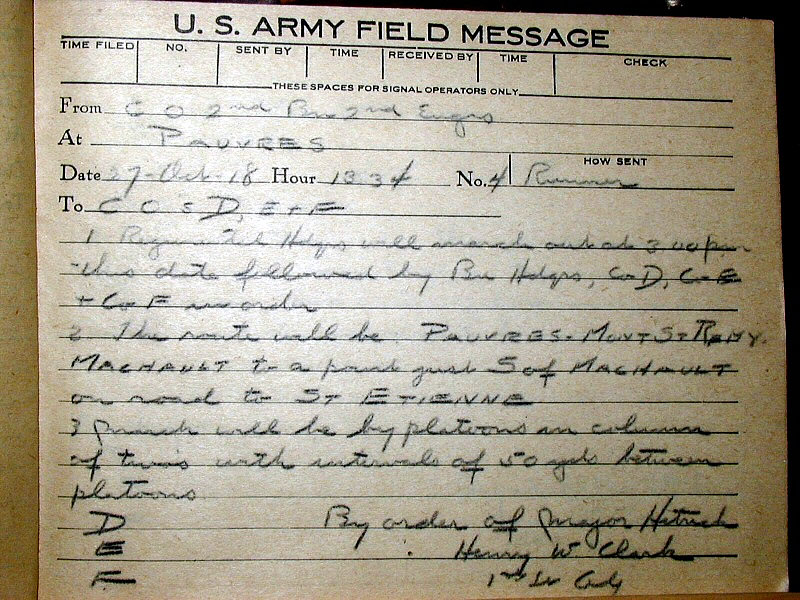 U. S. ARMY FIELD MESSAGE
TIME FILED NO. SENT BY TIME RECEIVED BY TIME CHECK
THESE SPACES FOR SIGNAL OPERATORS ONLY
From C O 2nd Bn 2nd Engrs
At PAUVRES
Date 27-Oct-18 Hour 1334 No. 4 HOW SENT Runner
To C O s D, E + F
1 Regimental Hdqrs will march out at 3:00 pm
this date followed by Bn Hdqrs, Co D, Co E
+ Co F in order
2 The route will be PAUVRES - MONT ST REMY.
MACHAULT to a point just S of MACHAULT
on road to ST ETIENNE
3 march will be by platoons in column
of twos with intervals of 50 yds between
platoons
D By order of Major
E Henry W Clark
F 1st Lt Adj